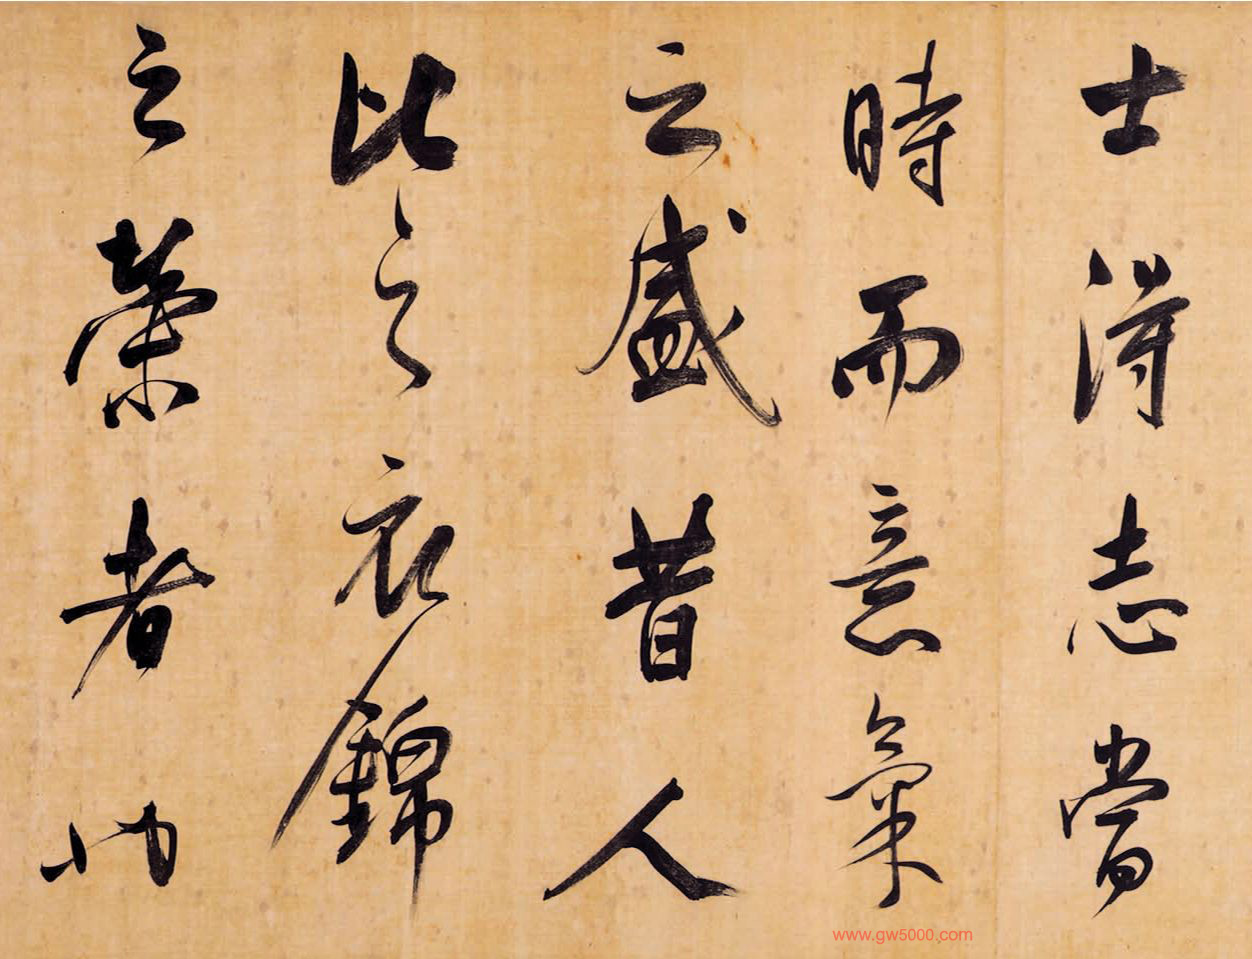 士得志當
時而意氣
之盛昔人
比之衣錦
之榮者也
www.gw5000.com